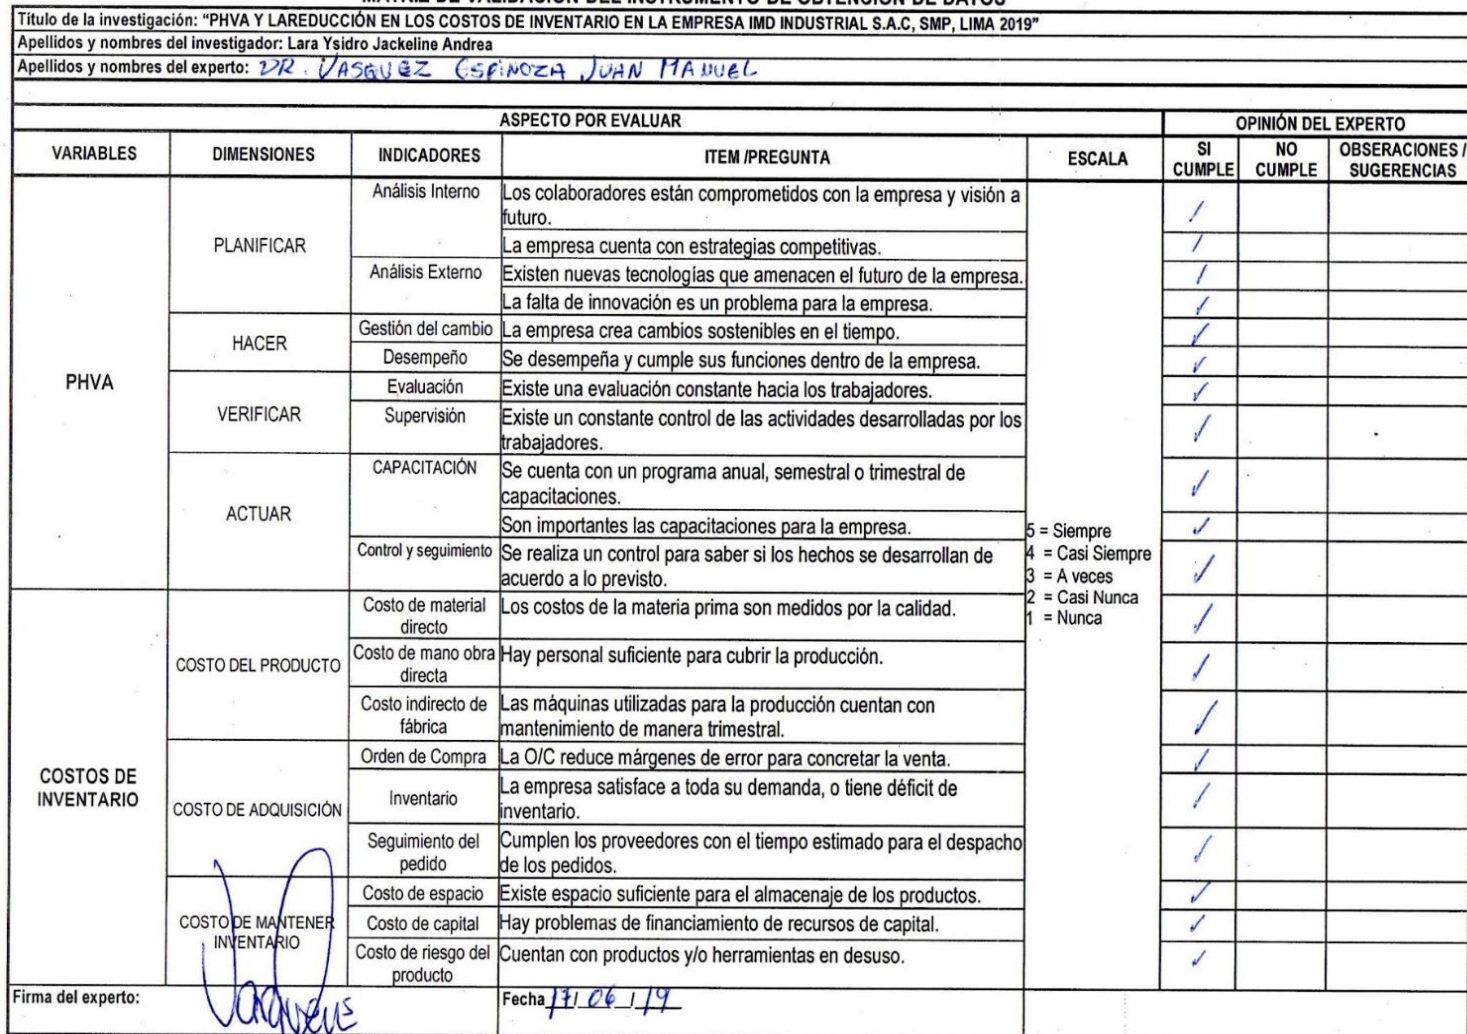 MATRIZ DE VALIDACIÓN DEL INSTRUMENTO DE OBTENCIÓN DE DATOS
Titulo de la investigación: “PHVA Y LAREDUCCIÓN EN LOS COSTOS DE INVENTARIO EN LA EMPRESA IMD INDUSTRIAL S.A.C, SMP, LIMA 2019”
Apellidos y nombres del investigador: Lara Ysidro Jackeline Andrea
Apellidos y nombres del experto: DR. VASQUEZ ESPINOZA JUAN MANUEL
ASPECTO POR EVALUAR
OPINIÓN DEL EXPERTO
VARIABLES
DIMENSIONES
INDICADORES
ITEM /PREGUNTA
ESCALA
SI
CUMPLE
NO
CUMPLE
OBSERACIONES /
SUGERENCIAS
PHVA
PLANIFICAR
Análisis Interno
Los colaboradores están comprometidos con la empresa y visión a
futuro.
La empresa cuenta con estrategias competitivas.
Análisis Externo
Existen nuevas tecnologías que amenacen el futuro de la empresa.
La falta de innovación es un problema para la empresa.
HACER
Gestión del cambio
La empresa crea cambios sostenibles en el tiempo.
Desempeño
Se desempeña y cumple sus funciones dentro de la empresa.
VERIFICAR
Evaluación
Existe una evaluación constante hacia los trabajadores.
Supervisión
Existe un constante control de las actividades desarrolladas por los
trabajadores.
ACTUAR
CAPACITACIÓN
Se cuenta con un programa anual, semestral o trimestral de
capacitaciones.
Son importantes las capacitaciones para la empresa.
Control y seguimiento
Se realiza un control para saber si los hechos se desarrollan de
acuerdo a lo previsto.
5 = Siempre
4 = Casi Siempre
3 = A veces
2 = Casi Nunca
1 = Nunca
COSTOS DE
INVENTARIO
COSTO DEL PRODUCTO
Costo de material
directo
Los costos de la materia prima son medidos por la calidad.
Costo de mano obra
directa
Hay personal suficiente para cubrir la producción.
Costo indirecto de
fábrica
Las máquinas utilizadas para la producción cuentan con
mantenimiento de manera trimestral.
COSTO DE ADQUISICIÓN
Orden de Compra
La O/C reduce márgenes de error para concretar la venta.
Inventario
La empresa satisface a toda su demanda, o tiene déficit de
inventario.
Seguimiento del
pedido
Cumplen los proveedores con el tiempo estimado para el despacho
de los pedidos.
COSTO DE MANTENER
INVENTARIO
Costo de espacio
Existe espacio suficiente para el almacenaje de los productos.
Costo de capital
Hay problemas de financiamiento de recursos de capital.
Costo de riesgo del
producto
Cuentan con productos y/o herramientas en desuso.
Firma del experto:
Fecha 17/ 06 / 19